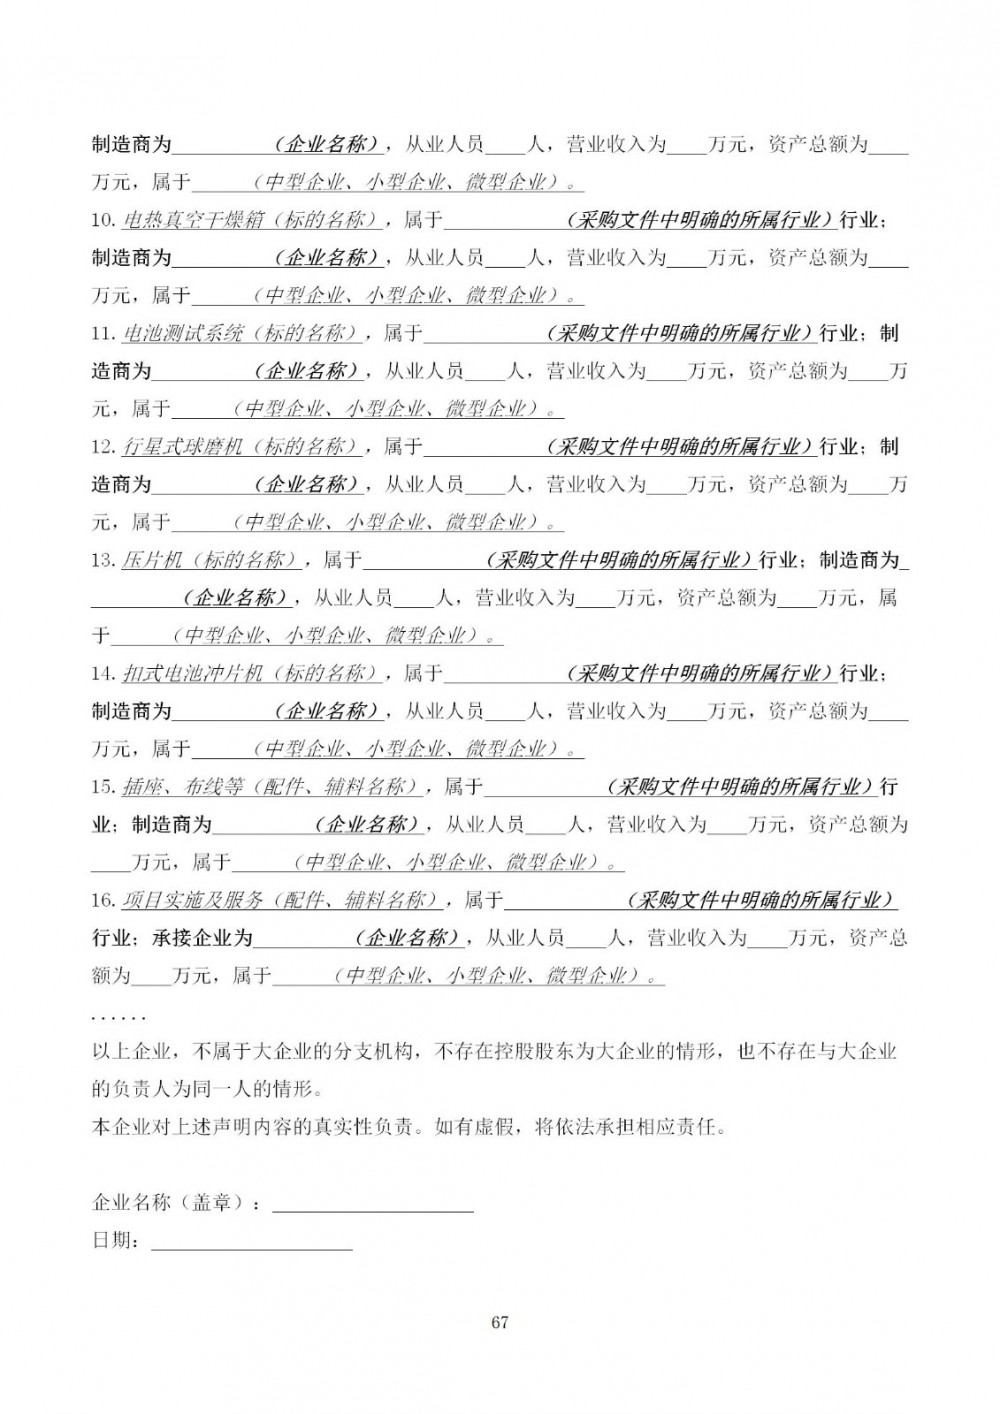 制造商为__________（企业名称），从业人员____人，营业收入为____万元，资产总额为____
万元，属于______（中型企业、小型企业、微型企业）。
10.电热真空干燥箱（标的名称），属于____________（采购文件中明确的所属行业）行业；
制造商为__________（企业名称），从业人员____人，营业收入为____万元，资产总额为____
万元，属于______（中型企业、小型企业、微型企业）。
11.电池测试系统（标的名称），属于____________（采购文件中明确的所属行业）行业；制
造商为__________（企业名称），从业人员____人，营业收入为____万元，资产总额为____万
元，属于______（中型企业、小型企业、微型企业）。
12.行星式球磨机（标的名称），属于____________（采购文件中明确的所属行业）行业；制
造商为__________（企业名称），从业人员____人，营业收入为____万元，资产总额为____万
元，属于______（中型企业、小型企业、微型企业）。
13.压片机（标的名称），属于____________（采购文件中明确的所属行业）行业；制造商为_
_________（企业名称），从业人员____人，营业收入为____万元，资产总额为____万元，属
于______（中型企业、小型企业、微型企业）。
14.扣式电池冲片机（标的名称），属于____________（采购文件中明确的所属行业）行业；
制造商为__________（企业名称），从业人员____人，营业收入为____万元，资产总额为____
万元，属于______（中型企业、小型企业、微型企业）。
15.插座、布线等（配件、辅料名称），属于____________（采购文件中明确的所属行业）行
业；制造商为__________（企业名称），从业人员____人，营业收入为____万元，资产总额为
____万元，属于______（中型企业、小型企业、微型企业）。
16.项目实施及服务（配件、辅料名称），属于____________（采购文件中明确的所属行业）
行业；承接企业为__________（企业名称），从业人员____人，营业收入为____万元，资产总
额为____万元，属于______（中型企业、小型企业、微型企业）。
......
以上企业，不属于大企业的分支机构，不存在控股股东为大企业的情形，也不存在与大企业
的负责人为同一人的情形。
本企业对上述声明内容的真实性负责。如有虚假，将依法承担相应责任。
企业名称（盖章）：____________________
日期：____________________
67